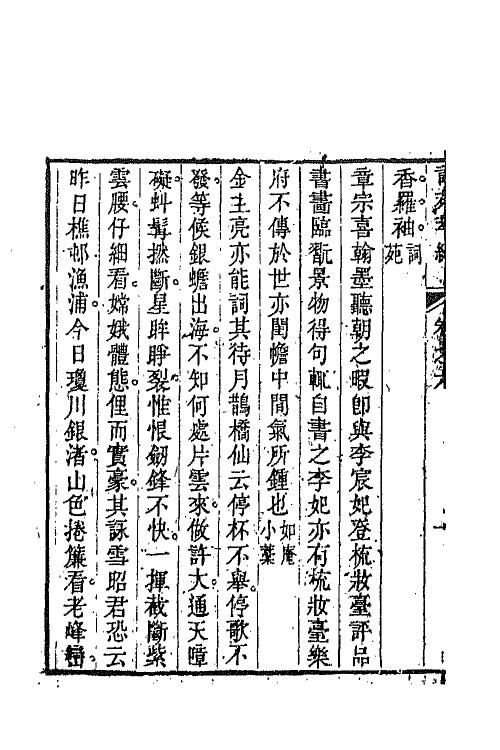 香羅袖詞苑
章宗喜翰墨聽朝之暇卽與李宸妃登梳妝臺評品
書畵臨翫景物得句輒自書之李妃亦有梳妝臺樂
府不傳於世亦閨幨中閒氣所鍾也如庵小藁
金主亮亦能詞其待月鵲橋仙云停杯不舉停歌不
發等候銀蟾出海不知何處片雲來做許大通天障
礙虯髯撚斷星眸睜裂惟恨劒鋒不快一揮截斷紫
雲腰仔細看嫦娥體態俚而實豪其詠雪昭君怨云
昨日樵邨漁浦今日瓊川銀渚山色捲簾看老峰巒